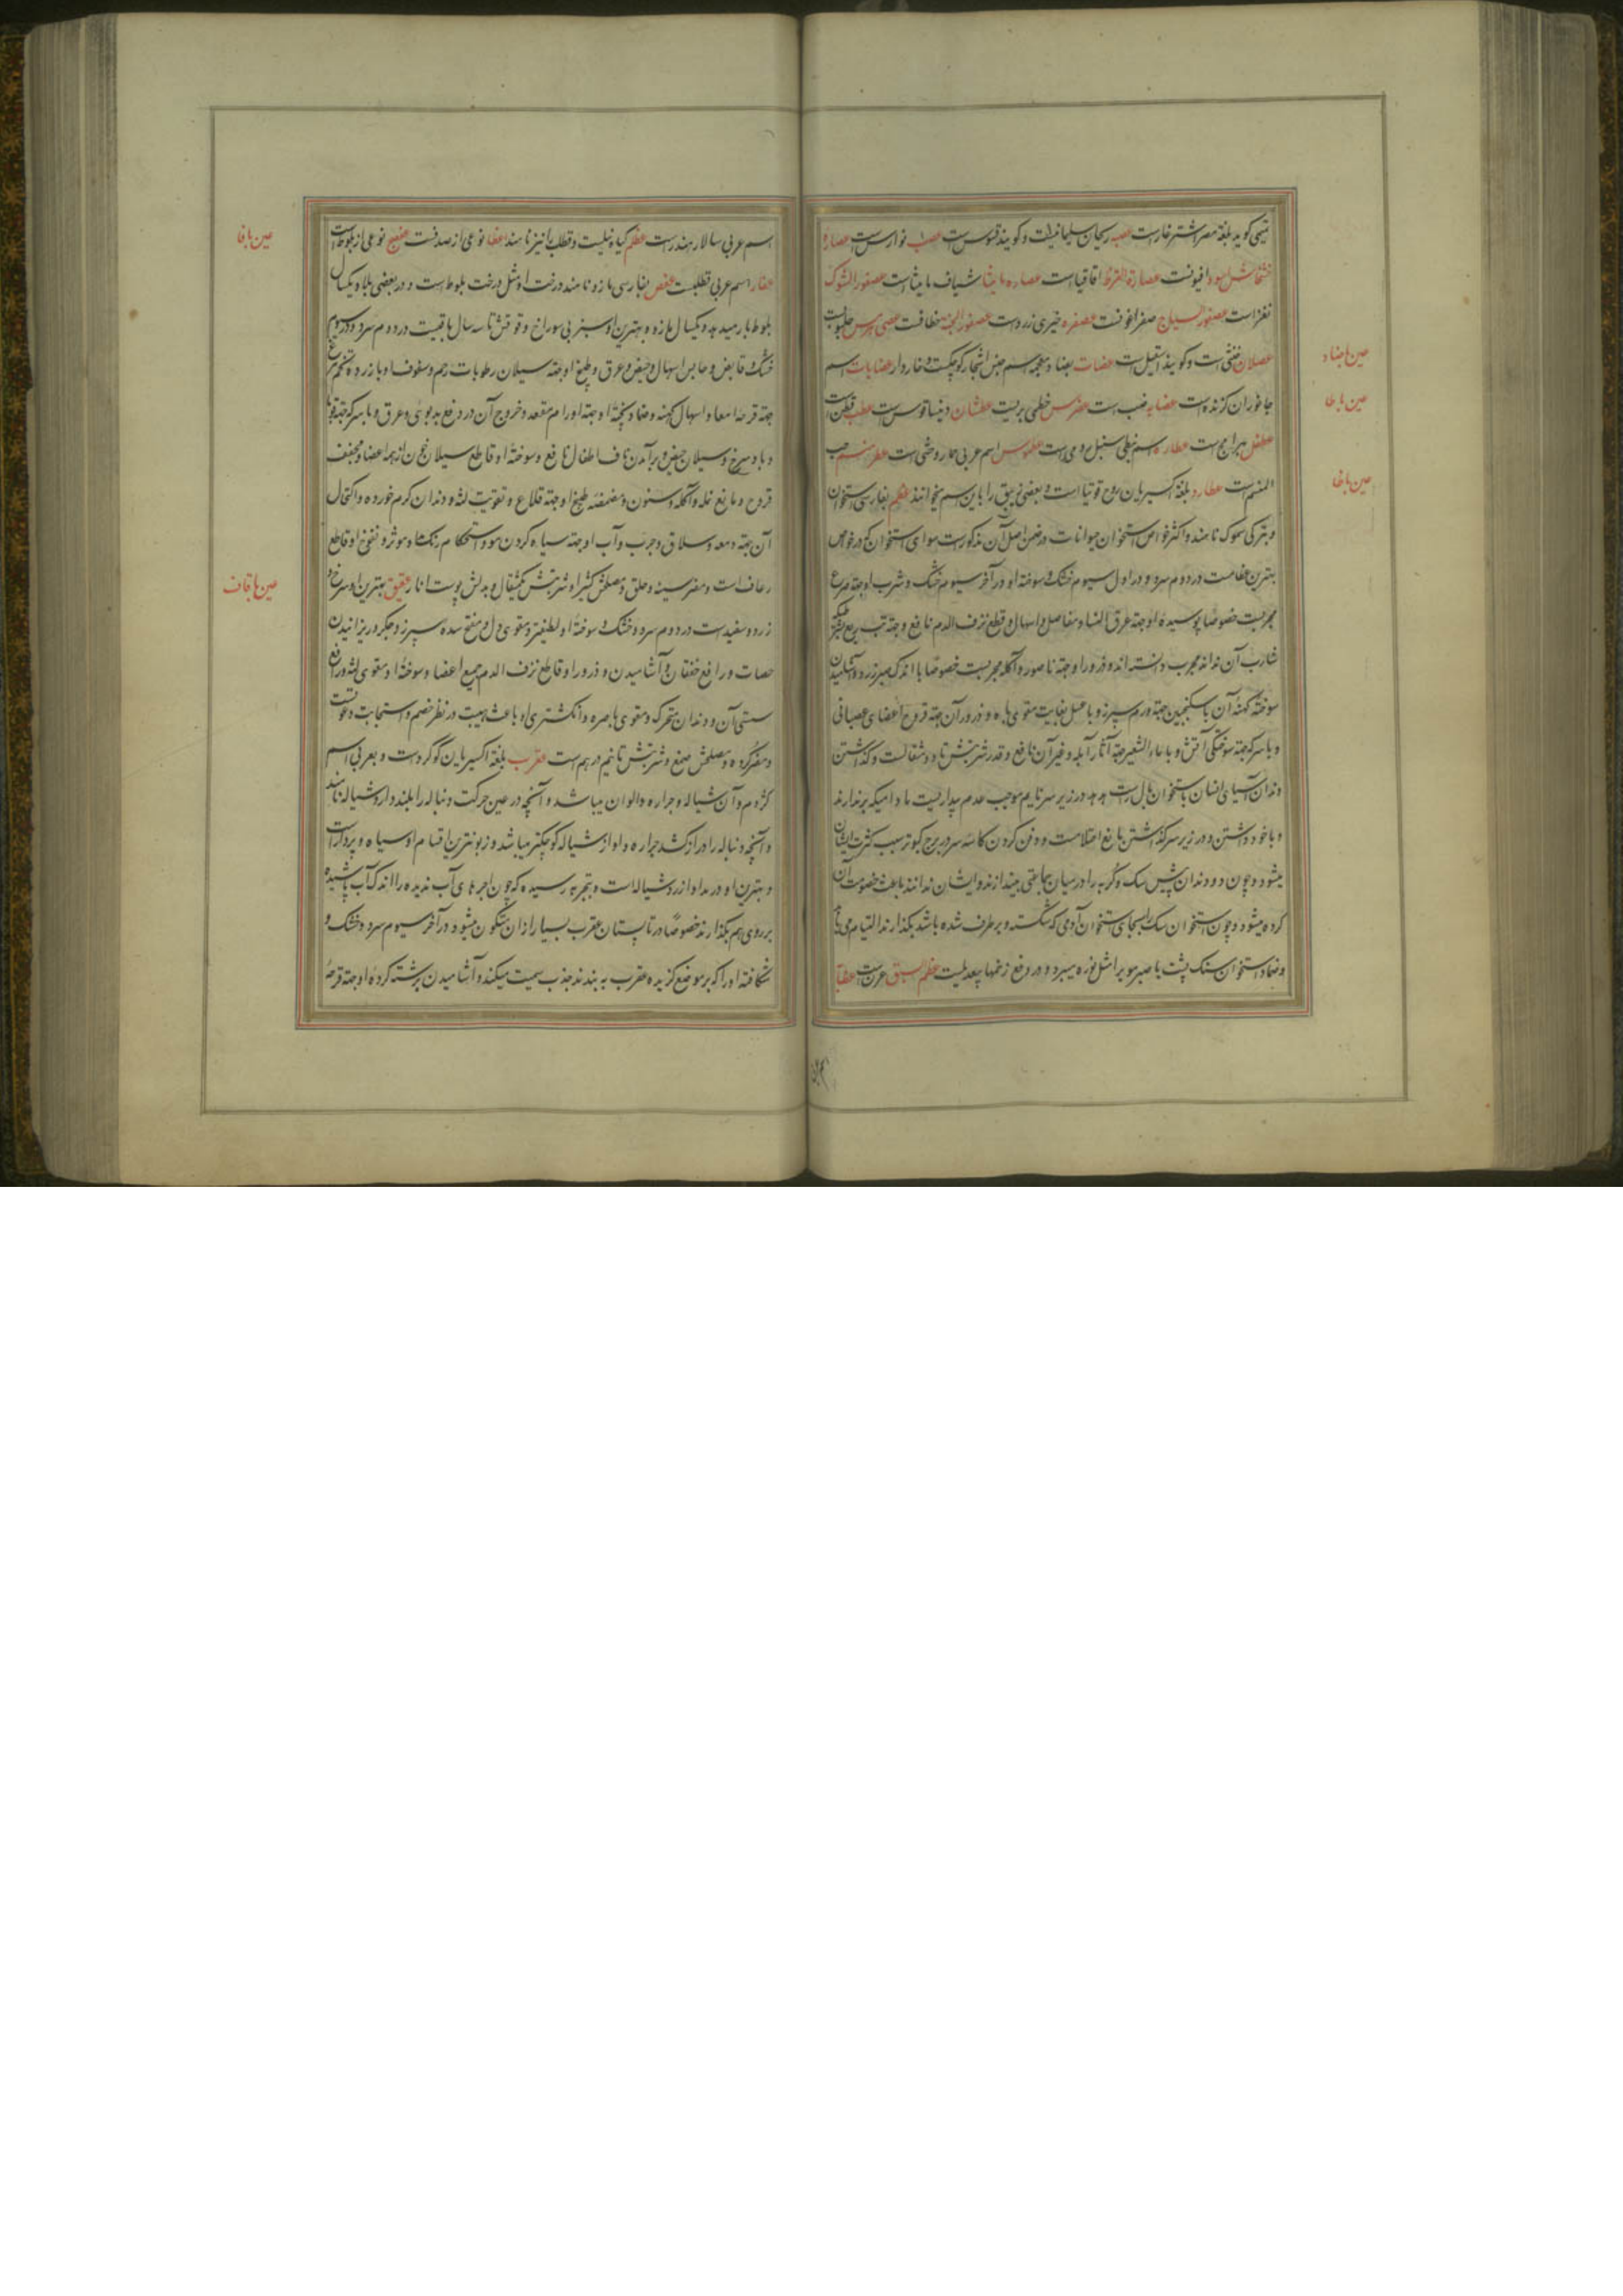 تمیمی کوید بلغة مصر اشترخار است عصبه ریحان سلیمانیست و کویند قسوس است عصب نوارس است عصارهٔ
خشخاش اسود افیونست عصارة القرظ اقاقیا است عصاره مامیثا شیاف مامیثا است عصفور الشوک
نغز است عصفور السیاج صفراغونست عصفره خیری زرد است عصفور الجنه خطافست عصی هرمس حلبوب است
عصلان خنثی است و کویند اسقیل است عضاة بضاد معجمه اسم جنس اشجار کوچکست و خاردار عضایات اسم
جانوران کزنده است عضایه ضب است عضرس خطمی بریست عطشان دینساقوس است عطب قطن است
المنسم است عطارد بلغة اکسیریان روح توتیا است و بعضی زیبق را باین اسم میخوانند عظم بفارسی استخوان
و بترکی سموک نامند و اکثر خواص استخوان حیوانات در ضمن اصل آن مذکور است سوای استخوان کم خواص
بهترین عظام است در دوم سرد و در اول سیوم خشک و سوخته او در آخر سیوم خشک و شرب او جهة صرع
مجربست خصوصا پوسیدهٔ او و جهة عرق النسا و مفاصل و اسهال و قطع نزف الدم نافع و جهة تب ربع
شارب آن نداند مجرب دانسته اند و ذرور او جهة ناصور و آکله مجربست خصوصا با اندک صبر زرد و آشامیدن
سوختهٔ کهنهٔ آن با سکنجبین جهة ورم سپرز و با عسل بغایت مقوی باه و ذرور آن جهة قروح اعضای عصبانی
و با سرکه جهة سوختکی آتش و با ماء الشعیر جهة آثار آبله و غیر آن نافع و قدر شربتش تا دو مثقالست و کذاشتن
دندان آسیای انسان با استخوان بال راست هدهد در زیر سر نایم موجب عدم بیداریست مادامیکه برندارند
و با خود داشتن و در زیر سر کذاشتن مانع احتلامست و دفن کردن کاسه سر در برج کبوتر سبب کثرت ایشان
میشود و چون دو دندان پیش سک و کربه را در میان جماعتی بیندازند و ایشان ندانند باعث خصومت آن
کرده میشود و چون استخوان سک را بجای استخوان آدمی که شکسته و برطرف شده باشد بکذارند التیام می یابد
و ضماد استخوان سنک پشت با صبر مو برا مثل نوره میبرد و در دفع زخمها بیعدیلست عظم السبق عرن است عظایا
عین با ضاد
عین با طا
عین با ظا
اسم عربی سالامندر است عظلم کیاه نیلست و قطلب را نیز نامند اعفا نوعی از صدفست عفنج نوعی از بلوط است
عفار اسم عربی قطلبست عفص بفارسی مازو نامند درخت او مثل درخت بلوط است و در بعضی بلاد یکسال
بلوط بار میدهد و یکسال مازو و بهترین او سبز بی سوراخ و قوتش تا سه سال باقیست در دوم سرد و در سیوم
خشک و قابض و حابس اسهال و حیض و عرق و طبیخ او جهة سیلان رطوبات رحم و سفوف او با زرده تخم مرغ
جهة قرحهٔ امعا و اسهال کهنه و ضماد پختهٔ او جهة اورام مقعد و خروج آن در رفع بدبوئی و عرق و با سرکه جهة قوبا
و باد سرخ و سیلان حیض و برآمدن ناف اطفال نافع و سوختهٔ او قاطع سیلان خون از همه اعضا و مجفف
قروح و مانع نمله و آکله و سنون و مضمضه طبیخ او جهة قلاع و تقویت لثه و دندان کرم خورده و اکتحال
آن جهة دمعه و سلاق و جرب و آب او جهة سیاه کردن مو و استحکام رنکها موثر و نفوخ او قاطع
رعاف است و مضر سینه و حلق و مصلحش کثیرا و شربتش یکمثقال و بدلش پوست انار عقیق بهترین او سرخ و
زرد و سفید است در دوم سرد و خشک و سوختهٔ او لطیفتر و مقوی دل و مفتح سده سپرز و جکر و ریزانیدن
حصات و رافع خفقان و آشامیدن و ذرور او قاطع نزف الدم جمیع اعضا و سوختهٔ او مقوی لثه و رافع
سستی آن و دندان متحرک و مقوی باصره و انکشتری او باعث هیبت در نظر خصم و استجابت دعوتست
و مضر کرده و مصلحش صمغ و شربتش تا نیم درهم است عقرب بلغة اکسیریان کوکرد است و بعربی اسم
کژدم و آن شیاله و جراره و الوان میباشد و آنچه در عین حرکت دنباله را بلند دارد شیاله نامند
و آنچه دنباله را دراز کشد جراره و او از شیاله کوچکتر میباشد و زبونترین اقسام او سیاه و پردار است
و بهترین او در مداوا زرد شیاله است و بتجربه رسیده که چون آجرهای آب ندیده را اندک آب پاشیده
بر روی هم بکذارند خصوصًا در تابستان عقرب بسیار از ان متکون میشود در آخر سیوم سرد و خشک و
شکافته او را که بر موضع کزیده عقرب به بندند جذب سمیت میکند و آشامیدن برشته کردهٔ او جهة قرحهٔ
عین با فا
عین با قاف